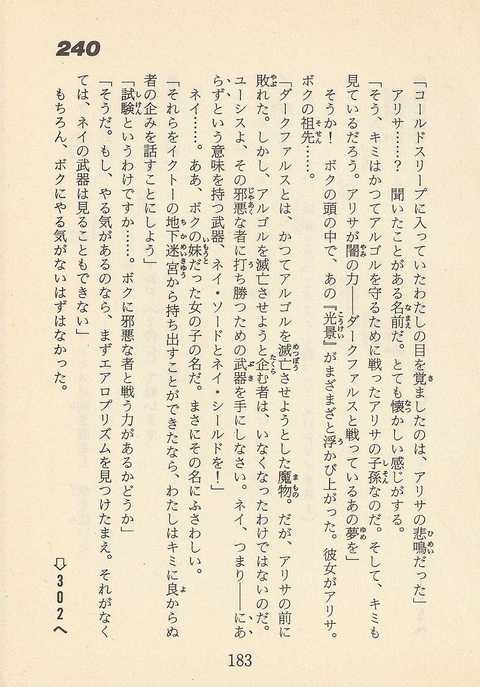 240
「コールドスリープに入っていたわたしの目を覚ましたのは、アリサの悲鳴だった」
アリサ……?　聞いたことがある名前だ。とても懐かしい感じがする。
「そう、キミはかつてアルゴルを守るために戦ったアリサの子孫なのだ。そして、キミも
見ているだろう。アリサが闇の力――ダークファルスと戦っているあの夢を」
そうか!　ボクの頭の中で、あの『光景』がまざまざと浮かび上がった。彼女がアリサ。
ボクの祖先……。
「ダークファルスとは、かつてアルゴルを滅亡させようとした魔物。だが、アリサの前に
敗れた。しかし、アルゴルを滅亡させようと企む者は、いなくなったわけではないのだ。
ユーシスよ、その邪悪な者に打ち勝つための武器を手にしなさい。ネイ、つまり――にあ
らずという意味を持つ武器、ネイ・ソードとネイ・シールドを!」
ネイ……。ああ、ボクの妹だった女の子の名だ。まさにその名にふさわしい。
「それらをイクトーの地下迷宮から持ち出すことができたなら、わたしはキミに良からぬ
者の企みを話すことにしよう」
「試験というわけですか……。ボクに邪悪な者と戦う力があるかどうか」
「そうだ。もし、やる気があるのなら、まずエアロプリズムを見つけたまえ。それがなく
ては、ネイの武器は見ることもできない」
もちろん、ボクにやる気がないはずはなかった。
⇨302へ
183